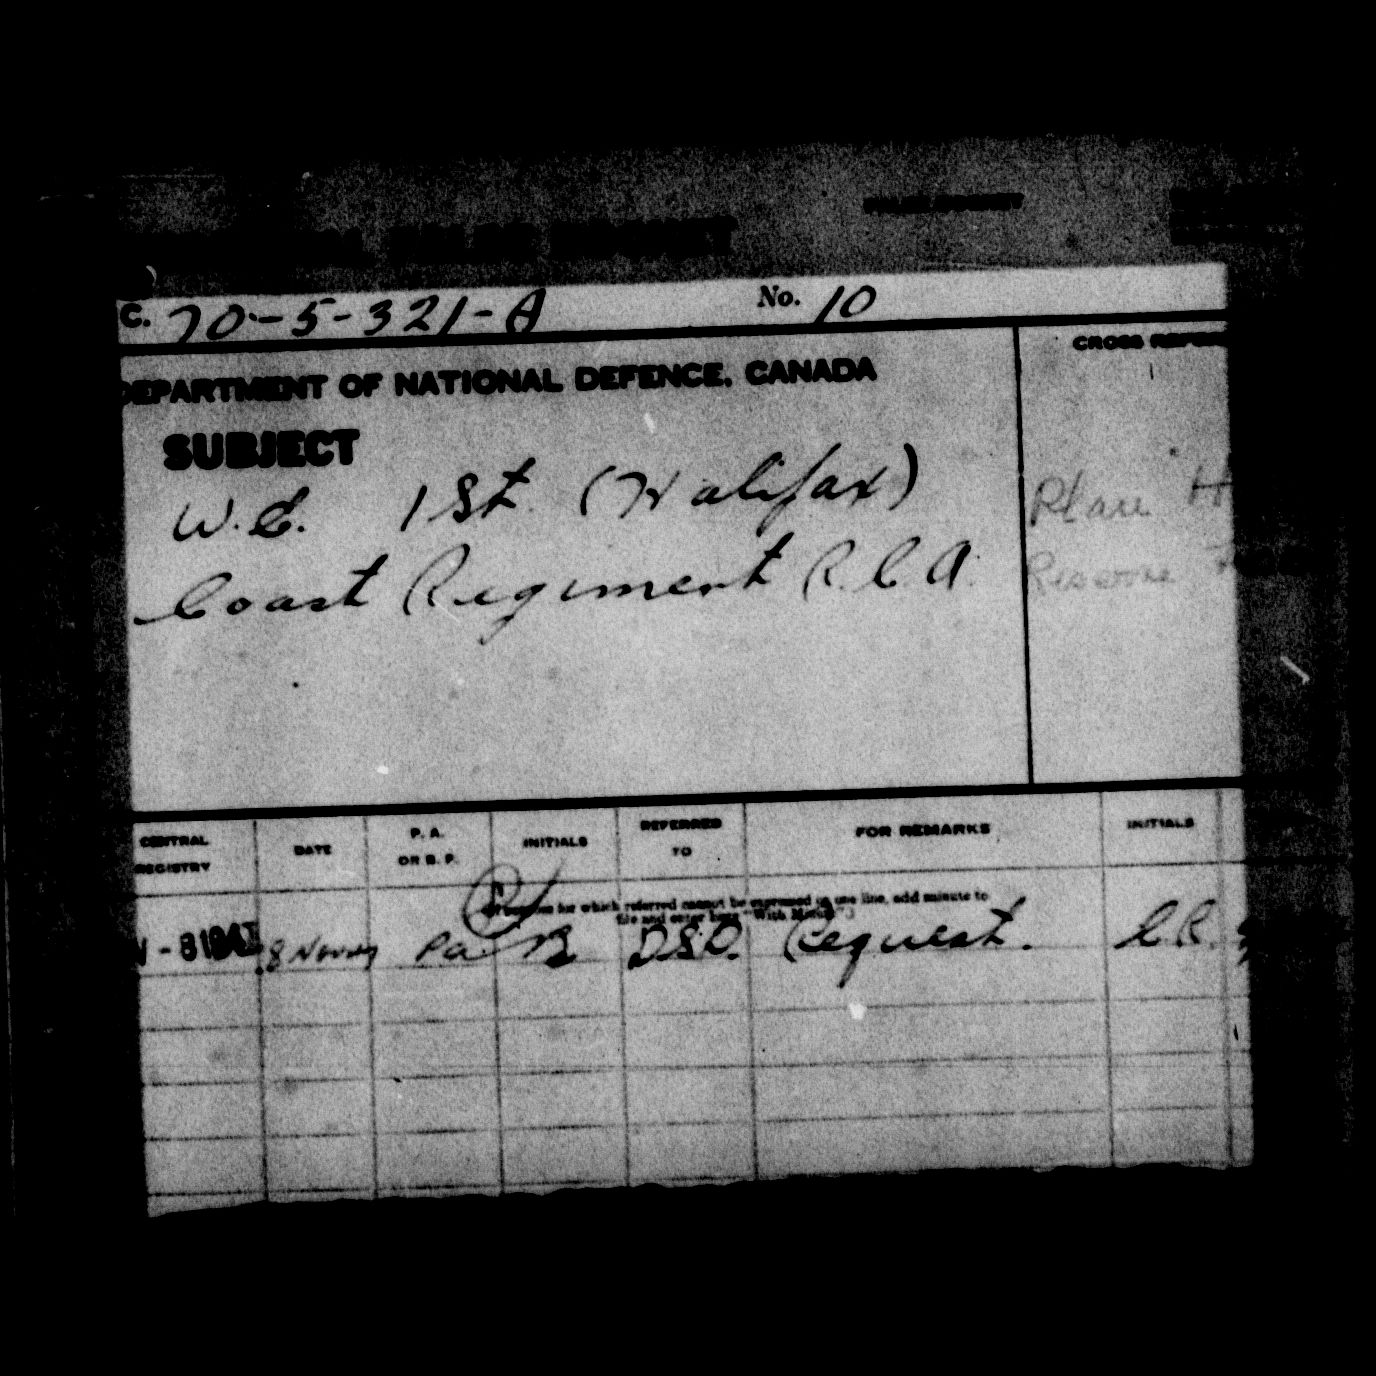 C. 70-5-321-A No. 10
DEPARTMENT OF NATIONAL DEFENCE, CANADA
CROSS REFER
SUBJECT
W.E. 1st (Halifax)
Coast Regiment R.C.A.
Place H
Reserve
CENTRAL REGISTRY DATE P. A. OR B. F. INITIALS REFERRED TO FOR REMARKS INITIALS
for which referred cannot be expressed in one line, add minute to
file and enter here "With Minute")
8 Nov PA DSD. Request.